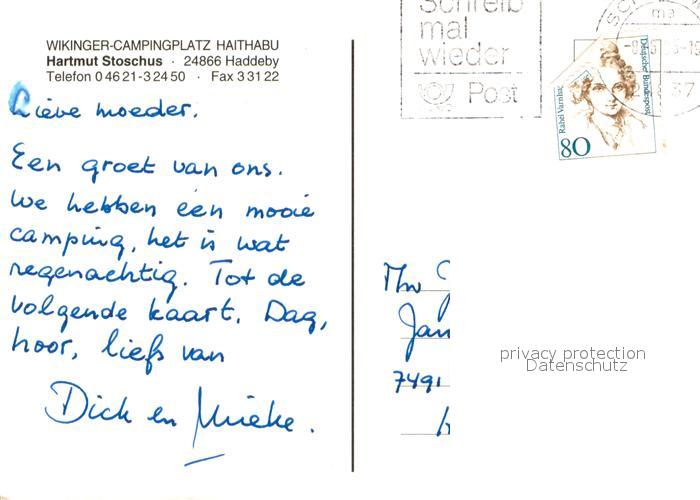 WIKINGER-CAMPINGPLATZ HAITHABU
Hartmut Stoschus · 24866 Haddeby
Telefon 0 46 21-3 24 50 · Fax 3 31 22
Lieve moeder.
Een groet van ons.
We hebben een mooie
camping, het is wat
regenachtig. Tot de
volgende kaart. Dag,
hoor, liefs van
Dick en Mieke.
Schreib
mal
wieder
Post
Deutsche Bundespost
Rahel Varnhag
80
Jan
7491
privacy protection
Datenschutz